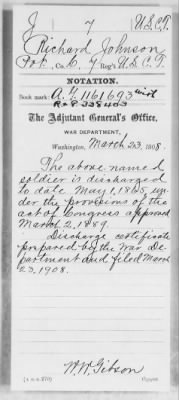 J 7 U.S.C.T.
Richard Johnson
Pvt., Co. C, 7 Reg't U.S.C.T.
NOTATION.
Book mark: A.G. 1161693
R & P 338403
The Adjutant General's Office,
WAR DEPARTMENT,
Washington, March 23, 1908.
The above named
soldier is discharged
to date May 1, 1865, un-
der the provisions of the
act of Congress approved
March 2, 1889.
Discharge certificate
prepared by the War De-
partment and filed March
23, 1908.
W. W. Gibson
Copyist.